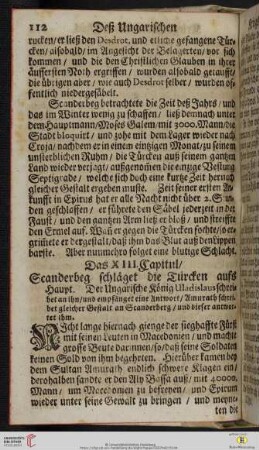 112 Deß Ungarischen
rucken/ er ließ den Desdrot, und etliche gefangene Tür-
cken/ alsobald/ im Angesicht der Belagerten/ vor sich
kommen/ und die den Christlichen Glauben in ihrer
äussersten Noth ergriffen/ wurden alsobald getaufft/
die übrigen aber/ wie auch Desdrot selber/ wurden öf-
fentlich niedergesäbelt.
Scanderbeg betrachtete die Zeit deß Jahrs/ und
das im Winter wenig zu schaffen/ ließ demnach unter
dem Hauptmann/ Moses Galem/ mit 3000. Mann die
Stadt bloquirt/ und zohe mit dem Lager wieder nach
Croja/ nachdem er in einem eintzigen Monat/ zu seinem
unsterblichen Ruhm/ die Türcken auß seinem gantzen
Land wieder verjagt/ außgenommen die eintzige Vestung
Septigrade/ welche sich doch eine kurtze Zeit hernach
gleicher Gestalt ergeben muste. Zeit seiner ersten An-
kunfft in Epirus hat er alle Nacht nicht über 2. Stun-
den geschlaffen/ er führete den Säbel jederzeit in der
Faust/ und den gantzen Arm ließ er bloß/ und streiffte
den Ermel auf. Wann er gegen die Türcken fochte/ so er-
grimmete er dergestalt/ daß ihm das Blut auß den Lippen
barste. Aber nunmehro folget eine blutige Schlacht.
Das XIII. Capitul/
Scanderbeg schläget die Türcken aufs
Haupt. Der Ungarische König Uladislaus schrei-
bet an ihn/ und empfänget eine Antwort/ Amurath schrei-
bet gleicher Gestalt an Scanderbeg/ und dieser antwor-
tet ihm.
Nicht lange hiernach gienge der sieghaffte Fürst
mit seinen Leuten in Macedonien/ und macht
grosse Beute darinnen/ so/ daß seine Soldaten
keinen Sold von ihm begehrten. Hierüber kamen bey
dem Sultan Amurath endlich schwere Klagen ein/
derohalben sandte er den Aly Bassa auß/ mit 40000.
Mann/ um Macedonien zu befreyen/ und Epirum
wieder unter seine Gewalt zu bringen/ und meyne-
ten die